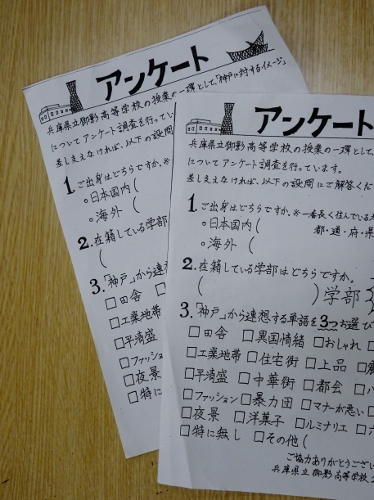 アンケート
兵庫県立御影高等学校の授業の一環として、「神戸に対するイメージ」
についてアンケート調査を行ってい
差し支えなければ、以下の設問
1. ご出身はどちらですか。
○日本国内(
○海外(
2. 在籍している学部
(
3. 「神戸」から連想す
□田舎
□工業地帯
□平清盛
□ファッション
□夜景
□特に
アンケート
兵庫県立御影高等学校の授業の一環として、
についてアンケート調査を行っています。
差し支えなければ、以下の設問にご解答くだ
1. ご出身はどちらですか。※一番長く住んでいる
○日本国内( 都・道・府・県
○海外(
2. 在籍している学部はどちらですか。
( )学部
3. 「神戸」から連想する単語を3つお選び
□田舎 □異国情緒 □おしゃれ
□工業地帯 □住宅街 □上品
□平清盛 □中華街 □都会
□ファッション □暴力団 □マナーが悪い
□夜景 □洋菓子 □ルミナリエ
□特に無し □その他(
ご協力ありがとうござい
兵庫県立御影高等学校